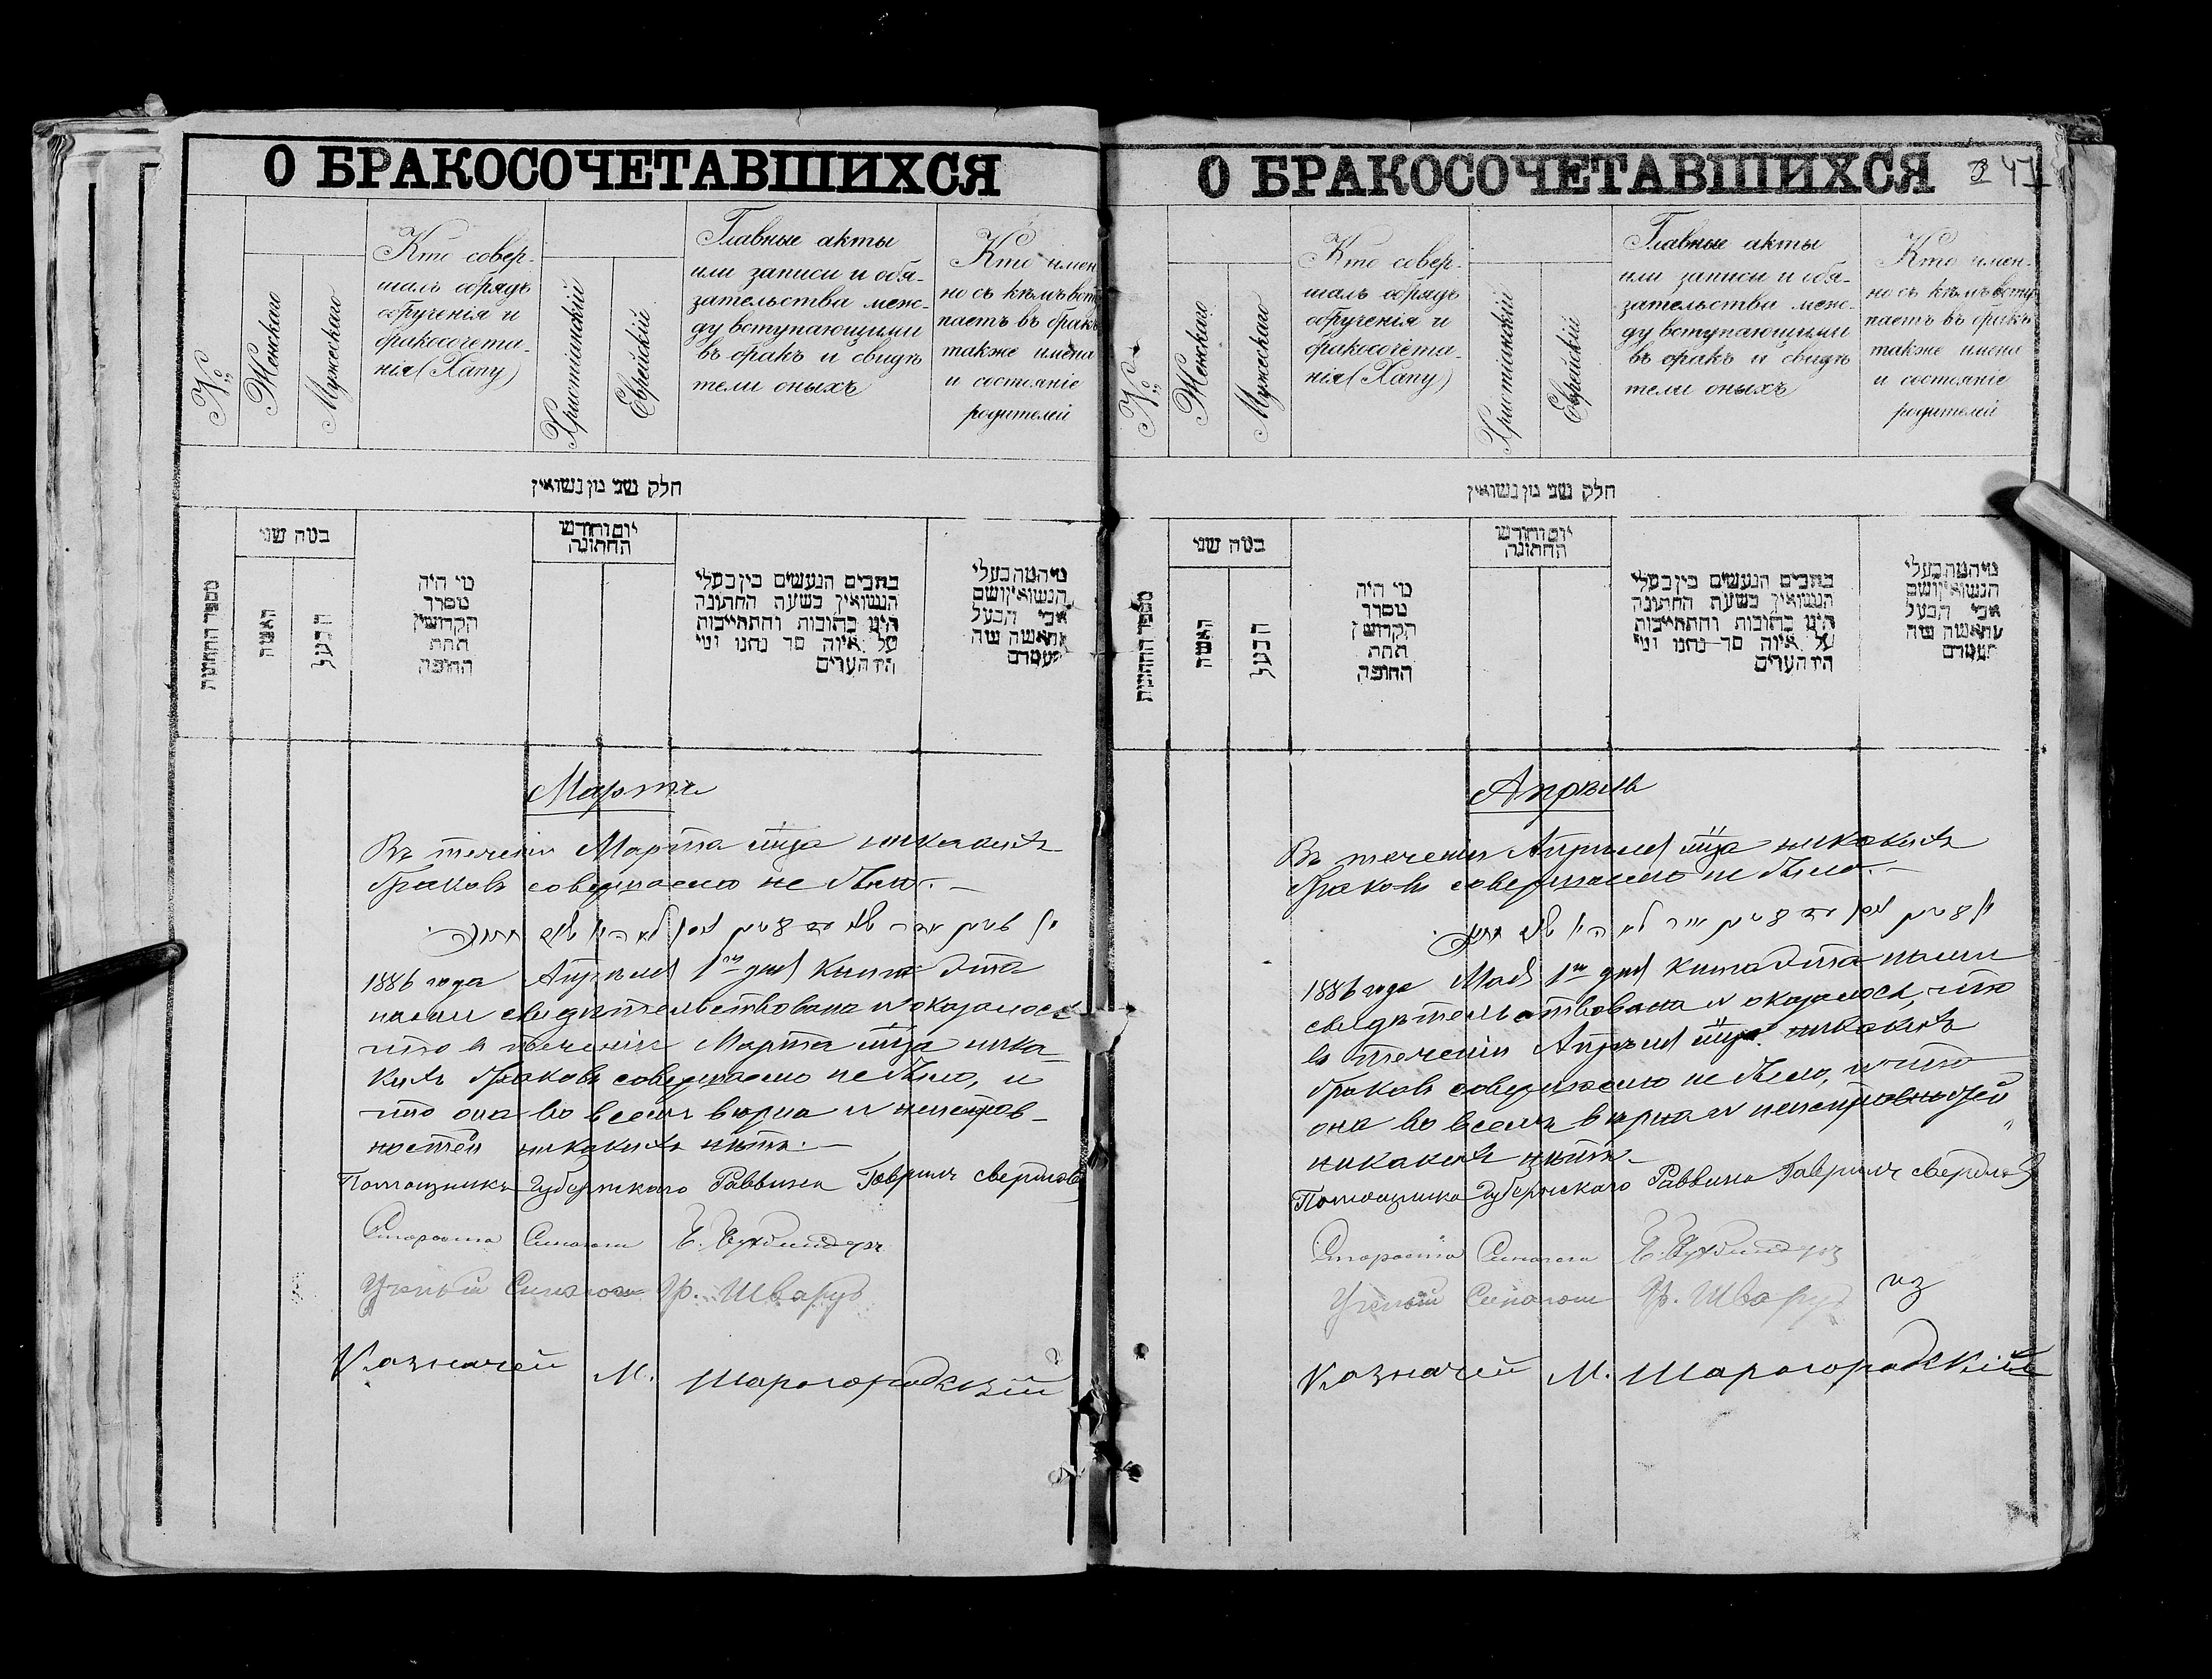 О БРАКОСОЧЕТАВШИХСЯ
№
Женскаго
Мужескаго
Кто совер-
шалъ обрядъ
обрученія и
бракосочета-
нія (Хапу)
Христіанскій
Еврейскій
Главные акты
или записи и обя-
зательства меж-
ду вступающими
въ бракъ и свидѣ
тели оныхъ
Кто имен
но съ кѣмъ всту
паетъ въ бракъ
также имена
и состояніе
родителей
חלק שני מן נשואין
מספר החתונות
כמה שני
האשה
הבעל
מי היה
מסדר
הקדושין
תחת
החופה
יום וחודש
החתונה
כתבים הנעשים בין בעלי
הנשואין בשעת החתונה
היינו כתובות והתחייבות
על איזה סך נתנו ומי
היו העדים
מי המה בעלי
הנשואין ושם
אבי הבעל
והאשה מה
מעמדם
Мартъ
Въ теченіи Марта мца никакихъ
браковъ совершаемо не было. —
1886 года Апрѣля 1го дня книга эта
нами свидѣтельствована и оказалось
что въ теченіи Марта мца ника-
кихъ браковъ совершаемо не было, и
что она во всемъ вѣрна и неисправ-
ностей никакихъ нѣтъ. —
Помощникъ Губернскаго Раввина Гавриилъ Свердловъ
Староста Синагоги
Ученый Синагоги Гр. Шварцъ
Казначей М. Шарогородскій
О БРАКОСОЧЕТАВШИХСЯ
3 47
№
Женскаго
Мужескаго
Кто совер-
шалъ обрядъ
обрученія и
бракосочета-
нія (Хапу)
Христіанскій
Еврейскій
Главные акты
или записи и обя-
зательства меж-
ду вступающими
въ бракъ и свидѣ
тели оныхъ
Кто имен-
но съ кѣмъ всту
паетъ въ бракъ
также имена
и состояніе
родителей
חלק שני מן נשואין
מספר החתונות
כמה שני
האשה
הבעל
מי היה
מסדר
הקדושין
תחת
החופה
יום וחודש
החתונה
כתבים הנעשים בין בעלי
הנשואין בשעת החתונה
היינו כתובות והתחייבות
על איזה סך נתנו ומי
היו העדים
מי המה בעלי
הנשואין ושם
אבי הבעל
והאשה מה
מעמדם
Апрѣль
Въ теченіи Апрѣля мца никакихъ
браковъ совершаемо не было. —
1886 года Мая 1го дня книга эта нами
свидѣтельствована и оказалось, что
въ теченіи Апрѣля мца никакихъ
браковъ совершаемо не было, и что
она во всемъ вѣрна и неисправностей
никакихъ нѣтъ. —
Помощникъ Губернскаго Раввина Гавриилъ Свердловъ
Староста Синагоги
Ученый Синагоги Гр. Шварцъ
Казначей М. Шарогородскій